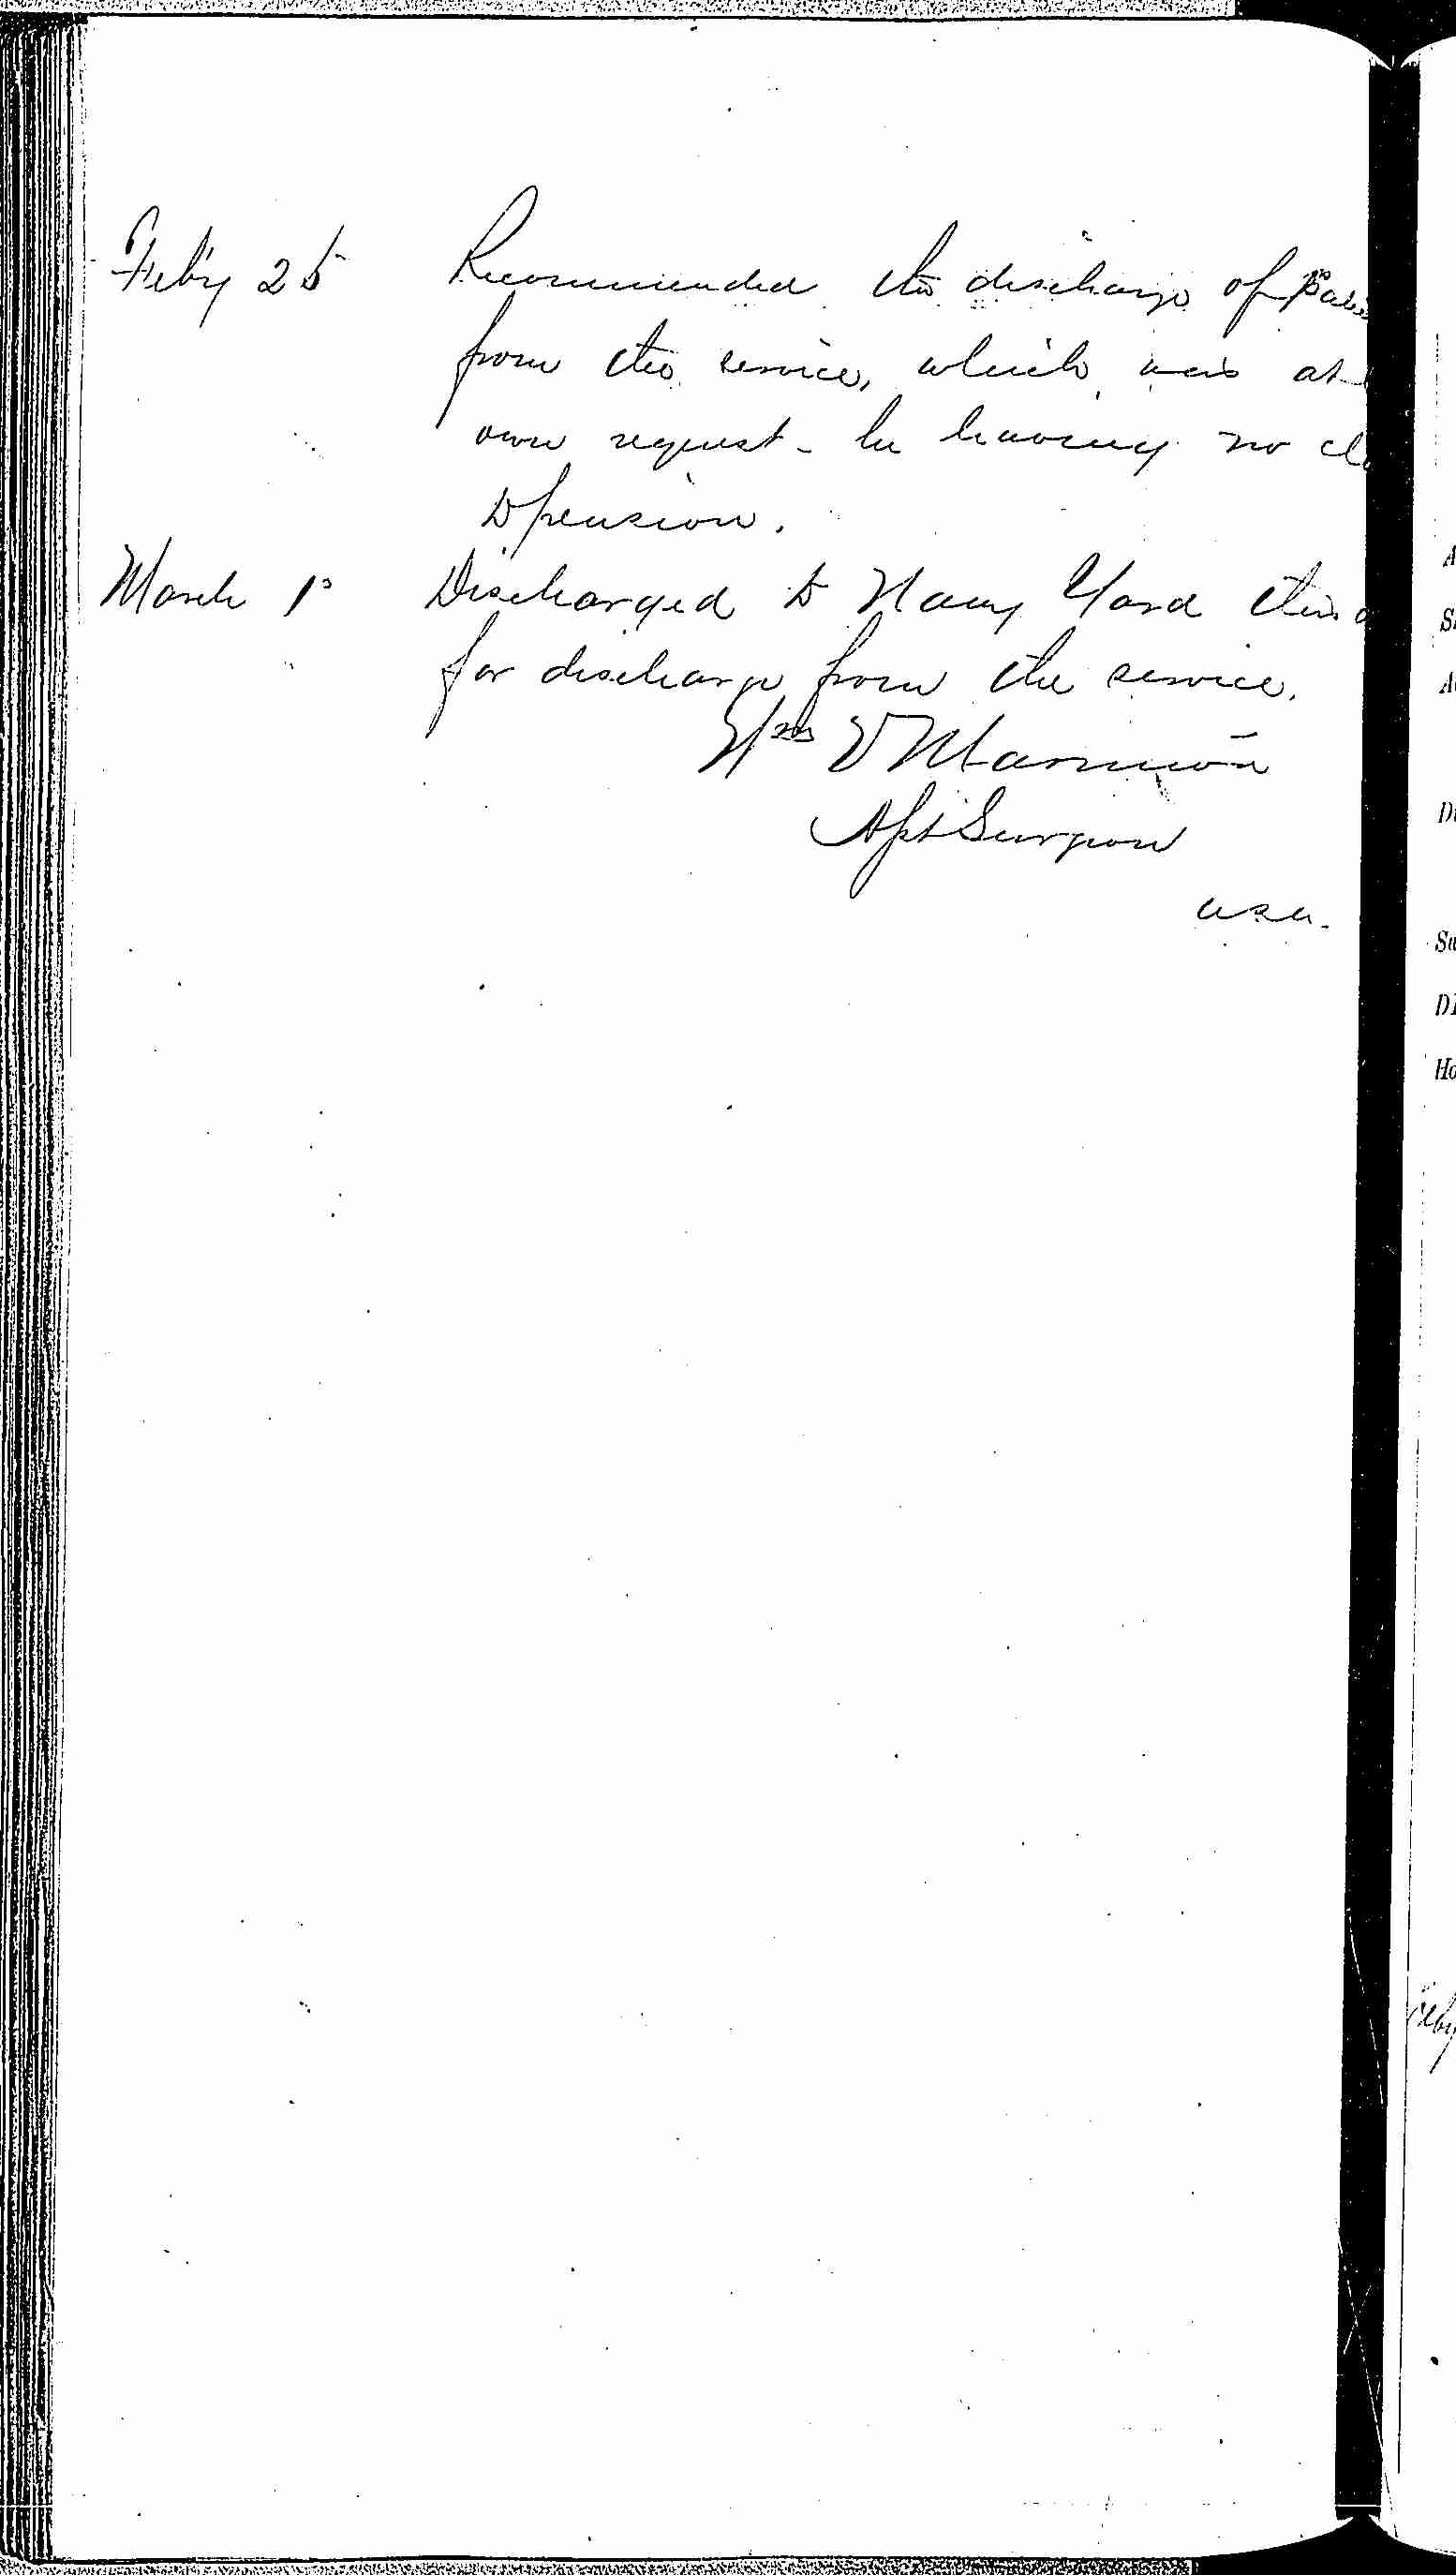 Feb'y 25 Recommended the discharge of Patie
from the service, which was at
own request - he having no cla
to pension.
March 1st Discharged to Navy Yard this d
for discharge from the service.
Wm V Marmion
Asst Surgeon
USN.
A
S
A
D
Su
DI
Ho
Feby